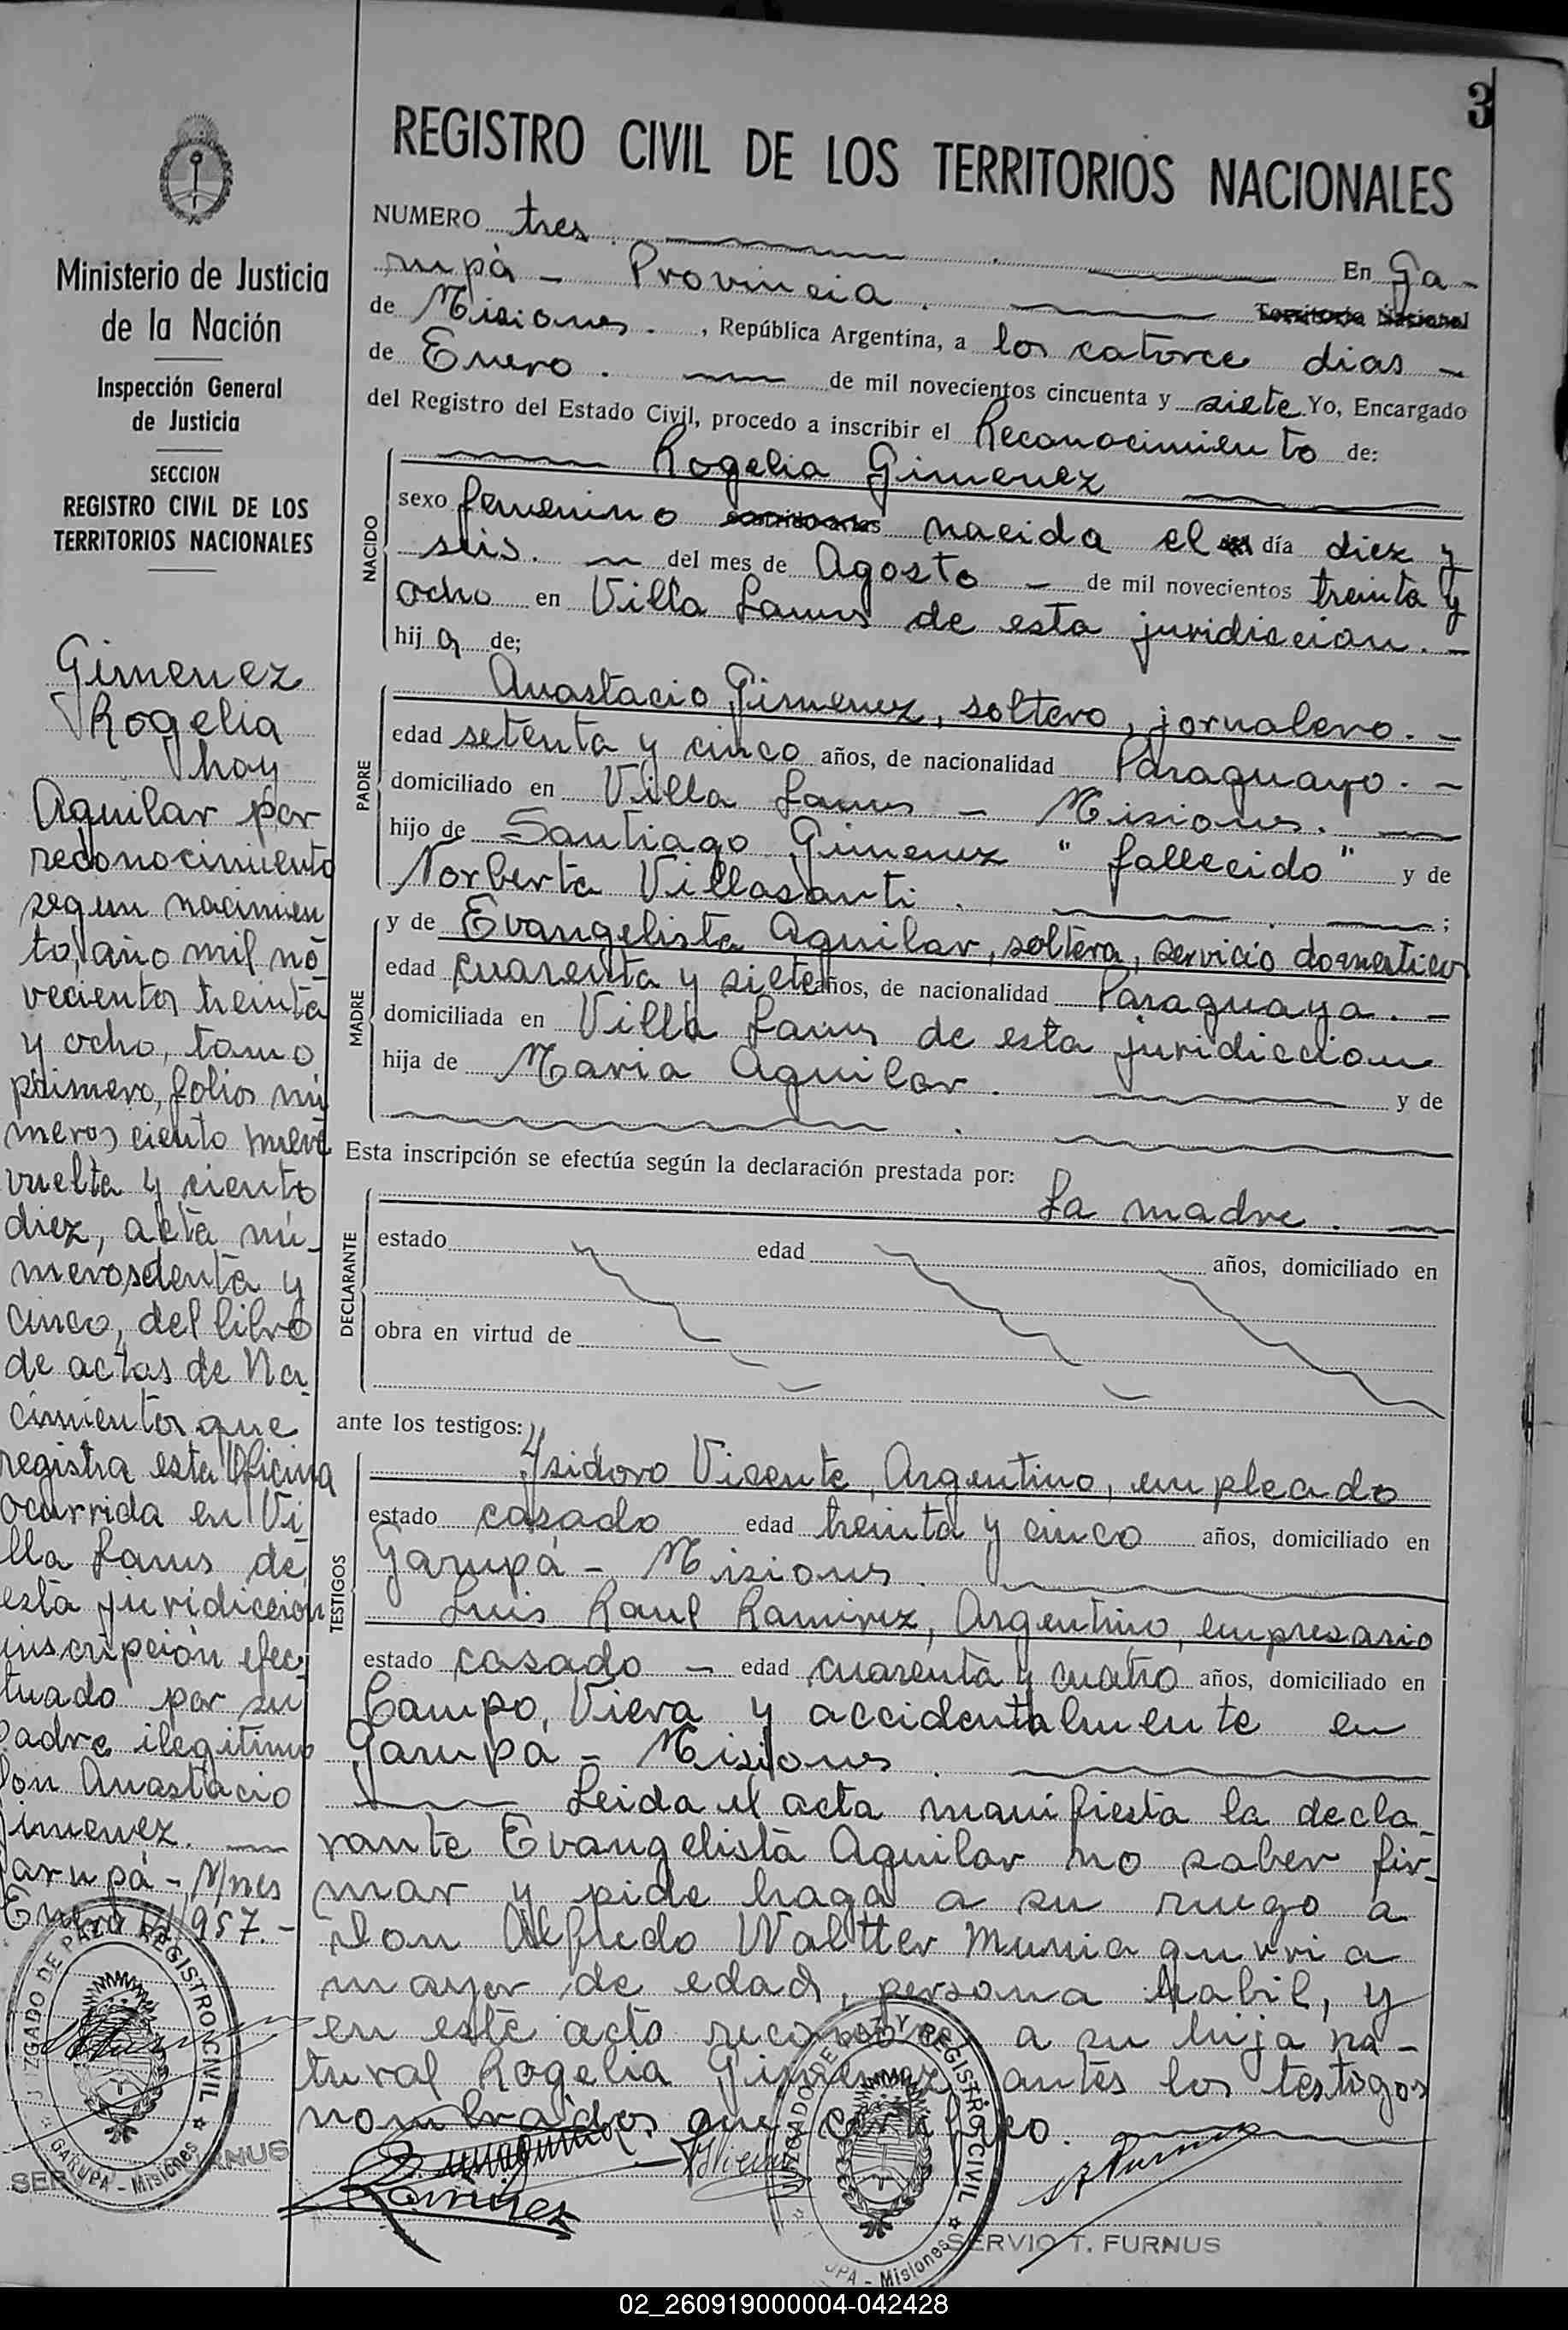 3
REGISTRO CIVIL DE LOS TERRITORIOS NACIONALES
NUMERO tres. En Ga-
rupá - Provincia. Territorio Nacional
de Misiones. , República Argentina, a los catorce dias -
de Enero. de mil novecientos cincuenta y siete Yo, Encargado
del Registro del Estado Civil, procedo a inscribir el Reconocimiento de:
NACIDO
Rogelia Gimenez
sexo femenino nacida el día diez y
seis. del mes de Agosto - de mil novecientos treinta y
ocho en Villa Lanus de esta juridiccion. -
hij a de;
PADRE
Anastacio Gimenez, soltero, jornalero. -
edad setenta y cinco años, de nacionalidad Paraguayo. -
domiciliado en Villa Lanus - Misiones.
hijo de Santiago Gimenez " fallecido " y de
Norberta Villasanti. ;
MADRE
y de Evangelista Aguilar, soltera, servicio domestico
edad cuarenta y siete años, de nacionalidad Paraguaya. -
domiciliada en Villa Lanus de esta juridiccion
hija de Maria Aguilar. y de
Esta inscripción se efectúa según la declaración prestada por:
DECLARANTE
La madre.
estado edad años, domiciliado en
obra en virtud de
ante los testigos:
TESTIGOS
Ysidoro Vicente, Argentino, empleado
estado casado edad treinta y cinco años, domiciliado en
Garupá - Misiones.
Luis Raul Ramirez, Argentino, empresario
estado casado - edad cuarenta y cuatro años, domiciliado en
Campo, Viera y accidentalmente en
Garupa - Misiones.
Leida el acta manifiesta la decla-
rante Evangelista Aguilar no saber fir-
mar y pide haga a su ruego a
don Alfredo Waltter
mayor de edad, persona habil, y
en este acto reconoce a su hija na-
tural Rogelia Gimenez, antes los testigos
nombrados que certifico.
Ramirez
SERVIO T. FURNUS
JUZGADO DE PAZ Y REGISTRO CIVIL
GARUPA - Misiones
Ministerio de Justicia
de la Nación
Inspección General
de Justicia
SECCION
REGISTRO CIVIL DE LOS
TERRITORIOS NACIONALES
Gimenez
Rogelia
hoy
Aguilar por
reconocimiento
segun nacimien
to, año mil no-
vecientos treinta
y ocho, tomo
primero, folios nú
meros ciento nueve
vuelta y ciento
diez, acta nú-
mero setenta y
cinco, del libro
de actas de Na-
cimientos que
registra esta Oficina
ocurrida en Vi
lla Lanus de
esta juridiccion
inscripción efec-
tuado por su
padre ilegitimo
don Anastacio
Gimenez.
Garupá - M/nes
Enero 1957. -
JUZGADO DE PAZ Y REGISTRO CIVIL
GARUPA - Misiones
02_260919000004-042428